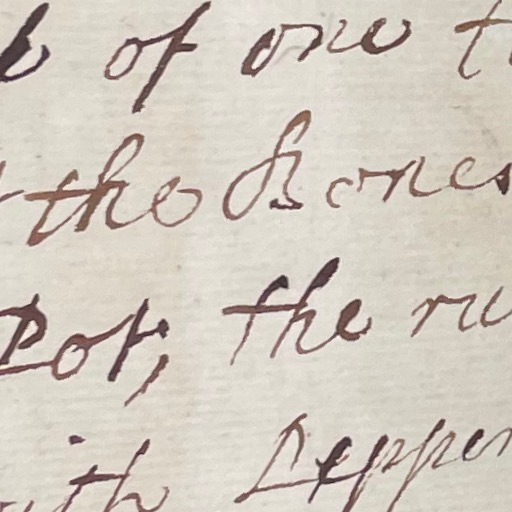 of one
the Bones
Pot; the ru
with Pepper